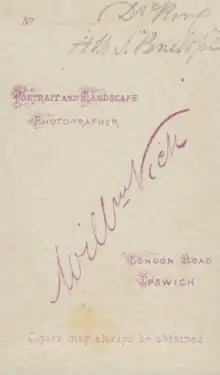 No
Dr
PORTRAIT AND LANDSCAPE
PHOTOGRAPHER
Willm Vick
LONDON ROAD
IPSWICH
Copies may always be obtained